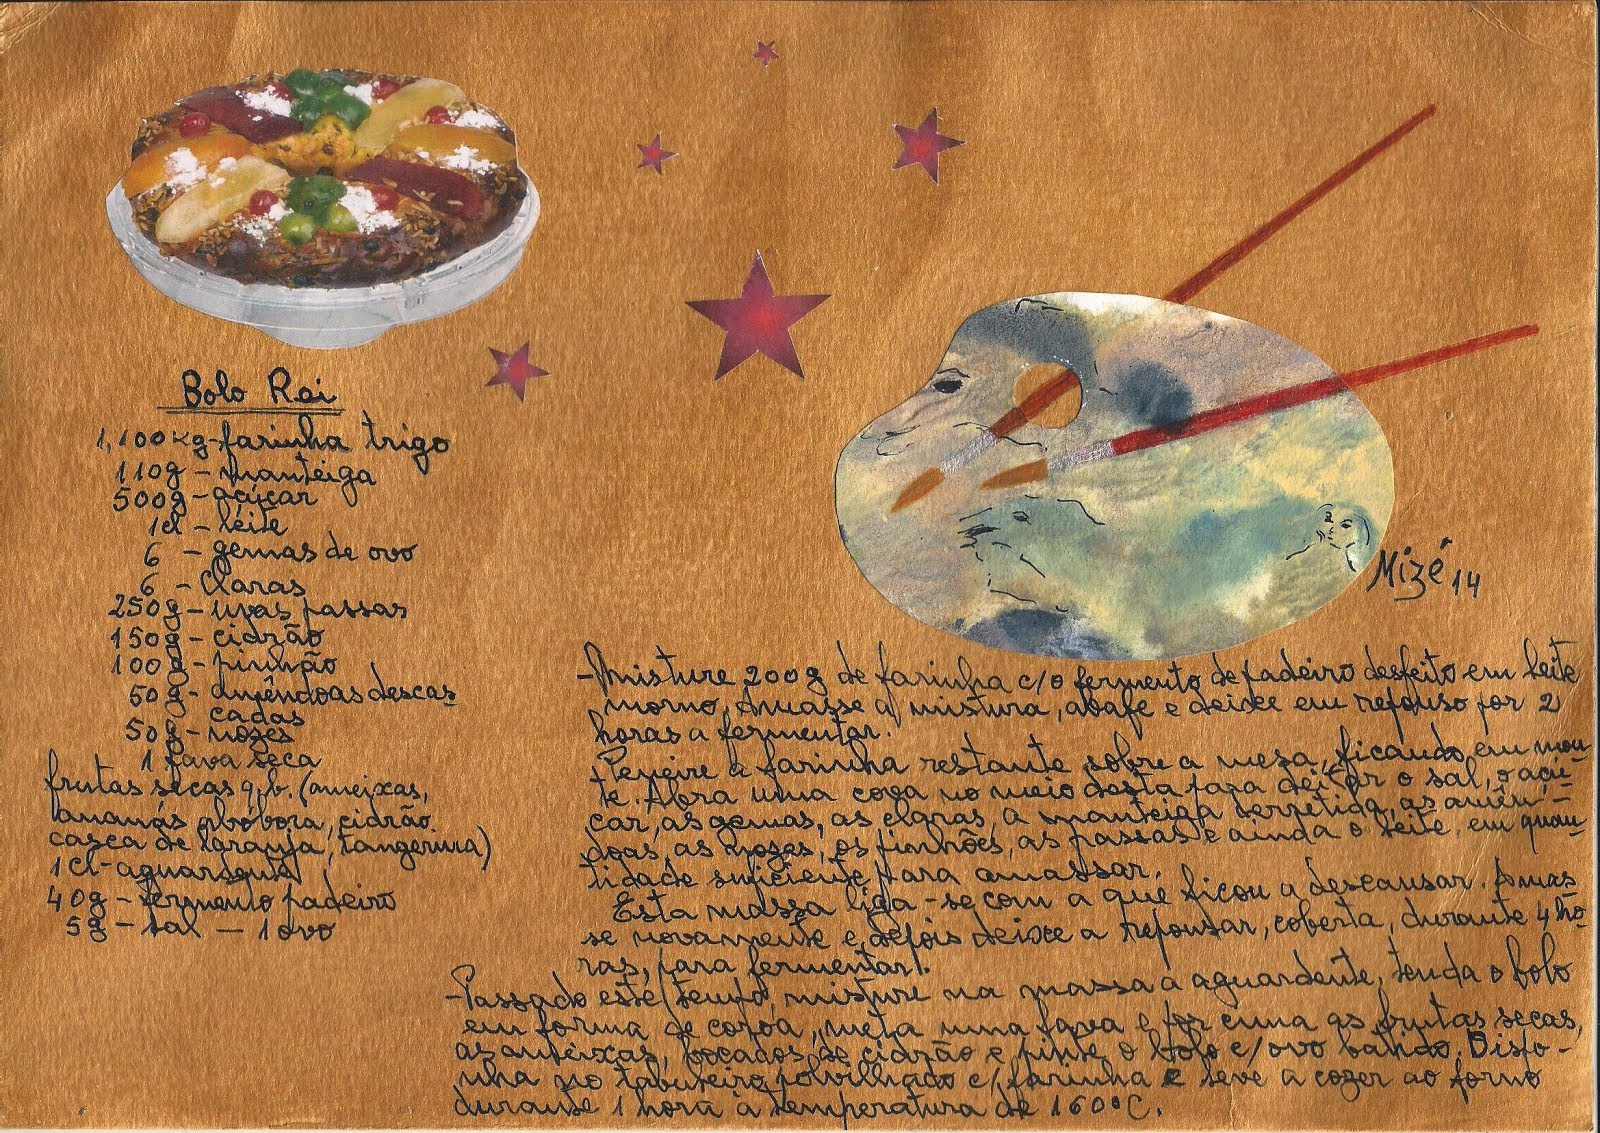 Bolo Rei
1,100kg-farinha trigo
110g - manteiga
500g - açúcar
1cl - leite
6 - gemas de ovo
6 - Claras
250g - uvas passas
150g - cidrão
100g - pinhão
50g - amêndoas descas
cadas
50g - nozes
1 fava seca
frutas secas q.b. (ameixas,
ananás abóbora, cidrão
casca de laranja, tangerina)
1Cl - aguardente
40g - fermento padeiro
5g - sal - 1 ovo
Mizé 14
- Misture 200g de farinha c/o fermento de padeiro desfeito em leite
morno, Amasse a mistura, abafe e deixe em repouso por 2
horas a fermentar.
+ Peneire a farinha restante sobre a mesa, ficando em mon
te. Abra uma cova no meio desta para deitar o sal, o açú-
car, as gemas, as claras, a manteiga derretida, as amên-
doas, as nozes, os pinhões, as passas e ainda o leite em quan-
tidade suficiente para amassar.
Esta massa liga-se com a que ficou a descansar. Amas
se novamente e depois deixe a repousar, coberta, durante 4 ho-
ras, para fermentar.
- Passado este tempo, misture na massa a aguardente, tenda o bolo
em forma de coroa, meta uma fava e por cima as frutas secas,
as ameixas, bocados de cidrão e pinte o bolo c/ovo batido. Dispo-
nha no tabuleiro polvilhado c/ farinha e leve a cozer ao forno
durante 1 hora à temperatura de 160°C.